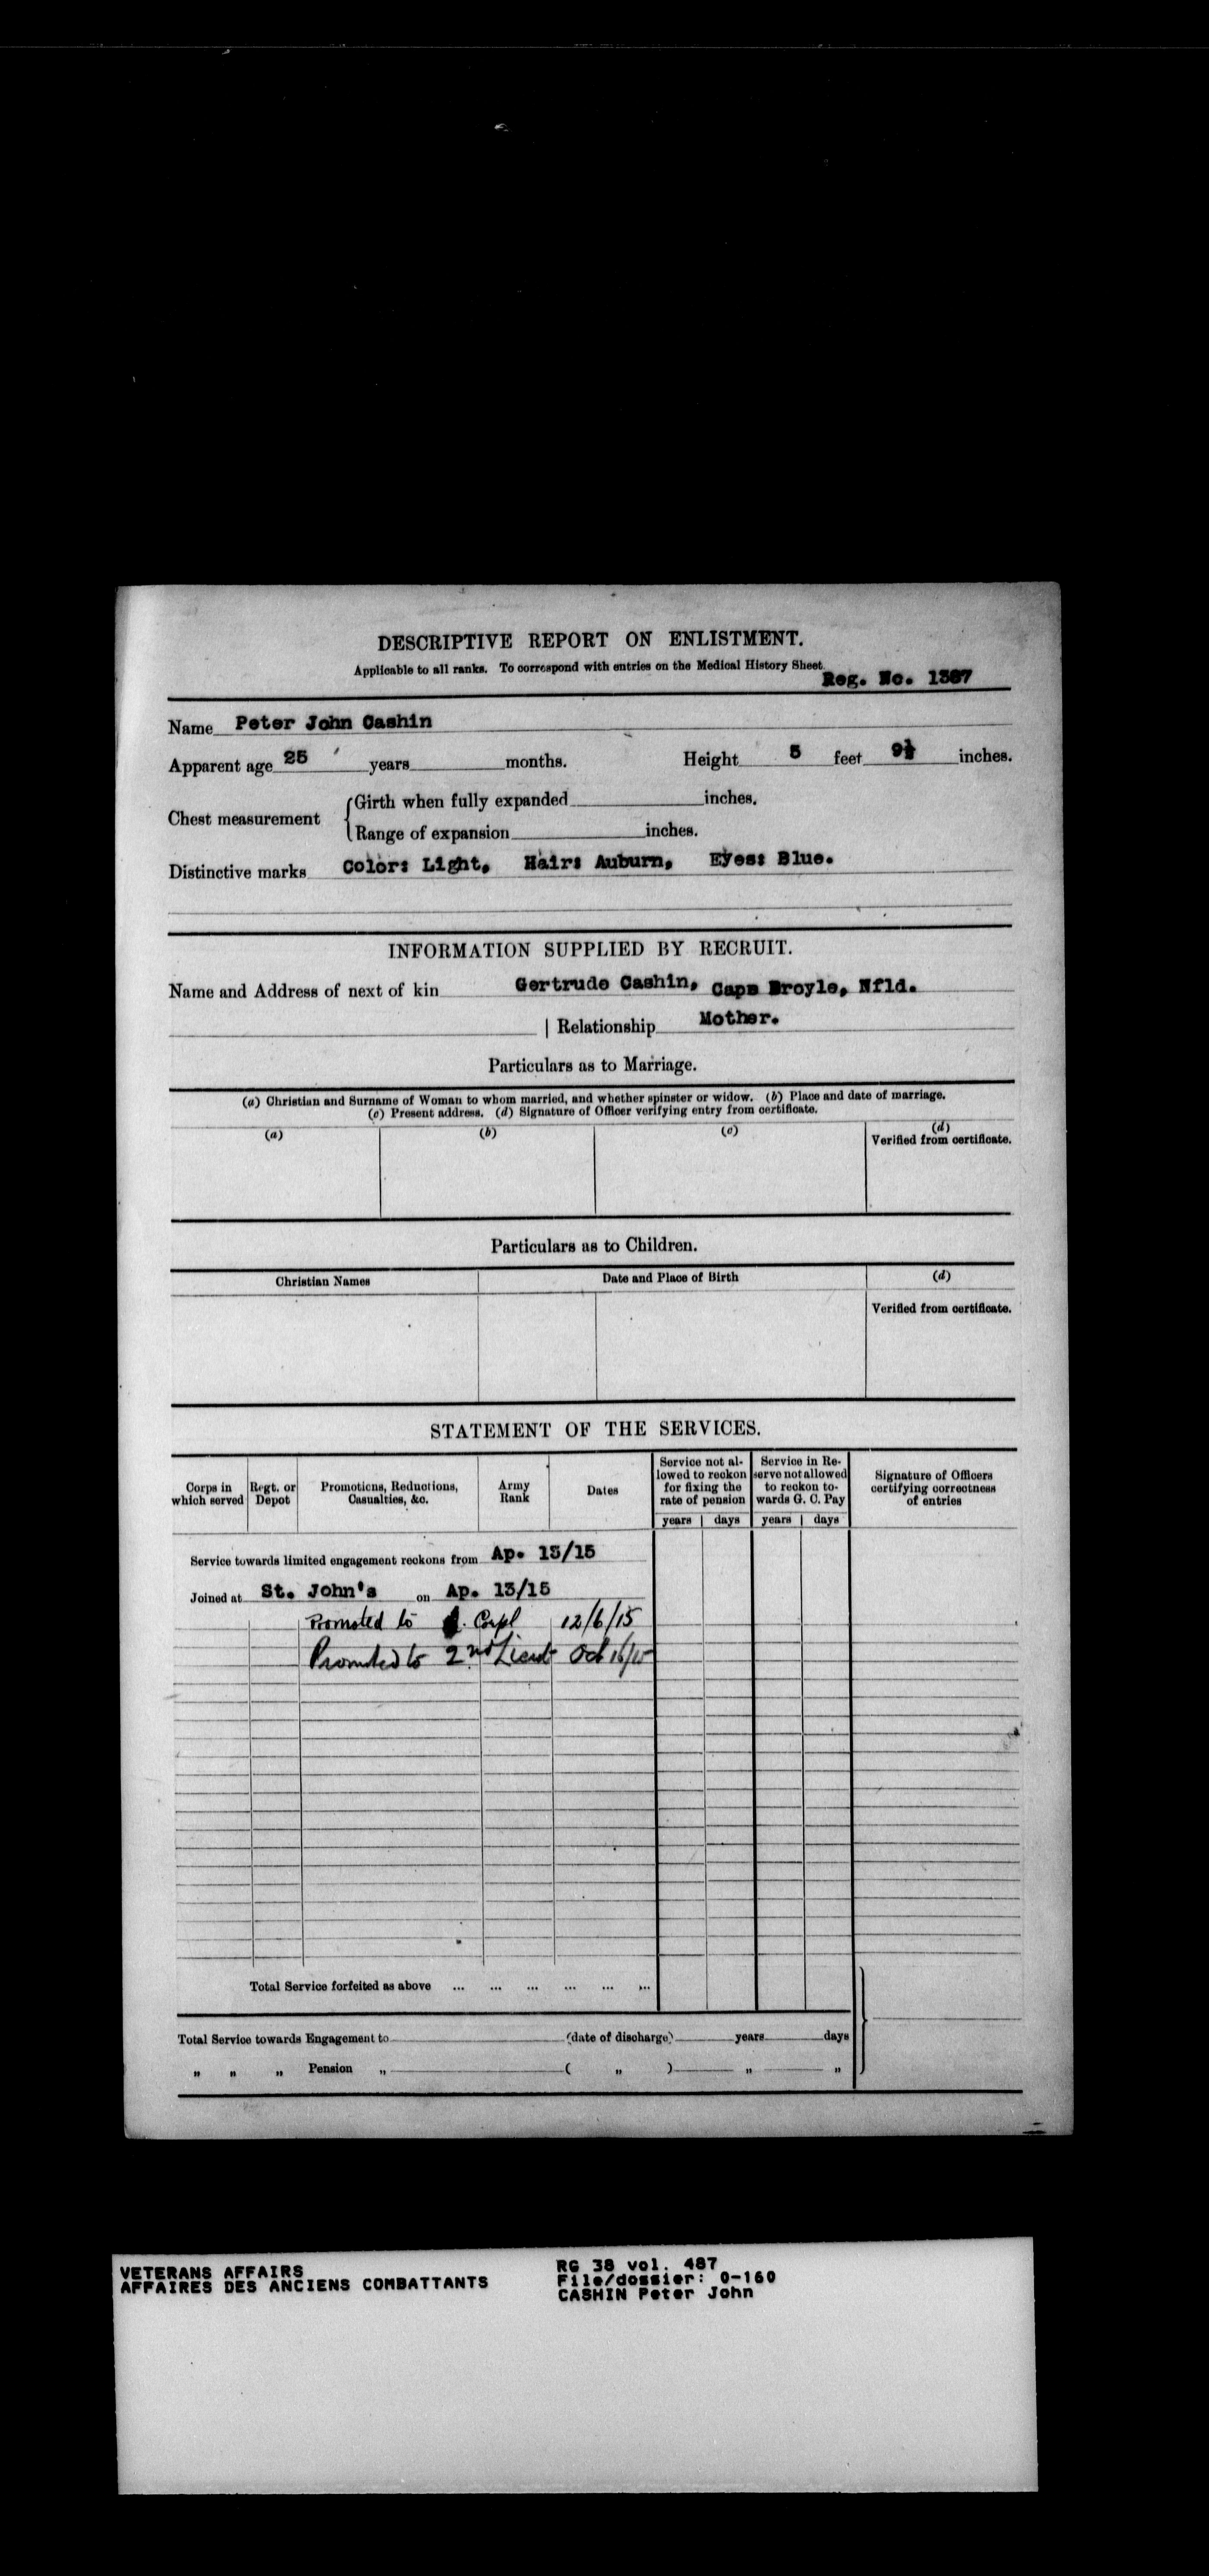 DESCRIPTIVE REPORT ON ENLISTMENT.
Applicable to all ranks. To correspond with entries on the Medical History Sheet.
Reg. No. 1367
Name Peter John Cashin
Apparent age 25 years months. Height 5 feet 9½ inches.
Chest measurement
Girth when fully expanded inches.
Range of expansion inches.
Distinctive marks Color: Light, Hair: Auburn, Eyes: Blue.
INFORMATION SUPPLIED BY RECRUIT.
Name and Address of next of kin Gertrude Cashin, Cape Broyle, Nfld.
| Relationship Mother.
Particulars as to Marriage.
(a) Christian and Surname of Woman to whom married, and whether spinster or widow. (b) Place and date of marriage.
(c) Present address. (d) Signature of Officer verifying entry from certificate.
(a) (b) (c) (d)
Verified from certificate.
Particulars as to Children.
Christian Names Date and Place of Birth (d)
Verified from certificate.
STATEMENT OF THE SERVICES.
Corps in which served Regt. or Depot Promotions, Reductions, Casualties, &c. Army Rank Dates Service not allowed to reckon for fixing the rate of pension Service in Reserve not allowed to reckon towards G. C. Pay Signature of Officers certifying correctness of entries
years days years days
Service towards limited engagement reckons from Ap. 13/15
Joined at St. John's on Ap. 13/15
Promoted to Corpl 12/6/15
Promoted to 2nd Lieut Oct 16/15
Total Service forfeited as above ... ... ... ... ... ...
Total Service towards Engagement to (date of discharge) years days
„ „ „ Pension „ ( „ ) „ „
VETERANS AFFAIRS
AFFAIRES DES ANCIENS COMBATTANTS
RG 38 vol. 487
File/dossier: 0-160
CASHIN Peter John